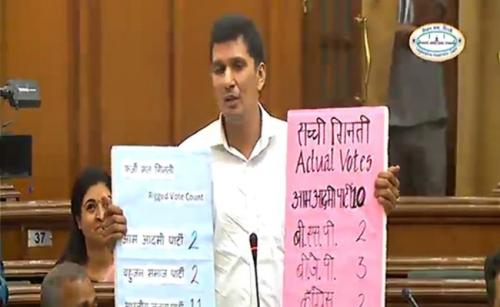 फर्जी मत गिनती
Rigged Vote Count
आम आदमी पार्टी 2
बहुजन समाज पार्टी 2
11
सच्ची गिनती
Actual Votes
आम आदमी पार्टी 10
बी.एस.पी. 2
बी.जे.पी. 3
कांग्रेस 2
37